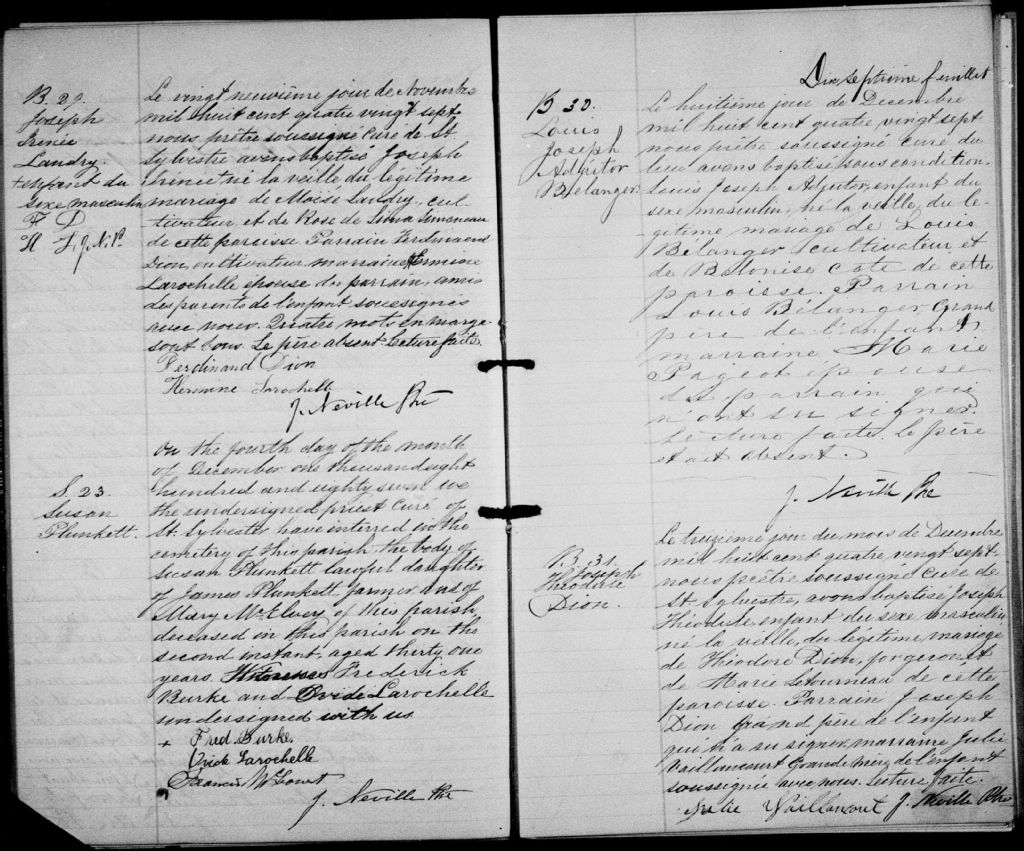 B. 29.
Joseph
Irenée
Landry.
+enfant du
sexe masculin
F D
H L J. N. Ptre
Le vingt neuvième jour de Novembre
mil huit cent quatre vingt sept
nous prêtre soussigné curé de St.
Sylvestre avons baptisé Joseph
Irenée né la veille du légitime
mariage de Moïse Landry, cul-
tivateur et de Rose de Lima Simoneau
de cette paroisse. Parrain Ferdinand
Dion, cultivateur marraine Hermine
Larochelle épouse du parrain, amis
des parents de l'enfant soussignés
avec nous. Quatre mots en marge
sont bons. Le père absent. Lecture faite
Ferdinand Dion
Hermine Larochelle
J. Neville Ptre
S. 23.
Susan
Plunkett.
On the fourth day of the month
of December one thousand eight
hundred and eighty seven we
the undersigned priest Curé of
St. Sylvester have interred in the
cemetery of this parish the body of
Susan Plunkett lawful daughter
of James Plunkett farmer and of
Mary McElvey of this parish,
deceased in this parish on the
second instant, aged thirty one
years. Witnesses Frederick
Burke and Ovide Larochelle
undersigned with us
+ Fred. Burke
Ovide Larochelle
Francis
J. Neville Ptre
Dix septième feuillet
B 30.
Louis
Joseph
Adjutor
Bélanger
Le huitième jour de Decembre
mil huit cent quatre vingt sept
nous prêtre soussigné curé du
lieu avons baptisé sous condition
Louis Joseph Adjutor, enfant du
sexe masculin, né la veille, du lé-
gitime mariage de Louis
Bélanger cultivateur et
de Coté de cette
paroisse. Parrain
Louis Bélanger Grand
père de l'enfant
marraine Marie
Pageot epouse
du parrain qui
n'ont su signer.
Lecture faite. le père
etait absent.
J. Neville Ptre
B. 31.
Joseph
Théodule
Dion.
Le treizième jour du mois de Decembre
mil huit cent quatre vingt sept
nous prêtre soussigné curé de
St. Sylvestre, avons baptisé Joseph
Théodule enfant du sexe masculin
né la veille, du légitime mariage
de Théodore Dion, forgeron et
de Marie Letourneau de cette
paroisse. Parrain Joseph
Dion Grand père de l'enfant
qui n'a su signer, marraine Julie
Vaillancourt Grande mère de l'enfant
soussignée avec nous. Lecture faite.
Julie Vaillancout J. Neville Ptre